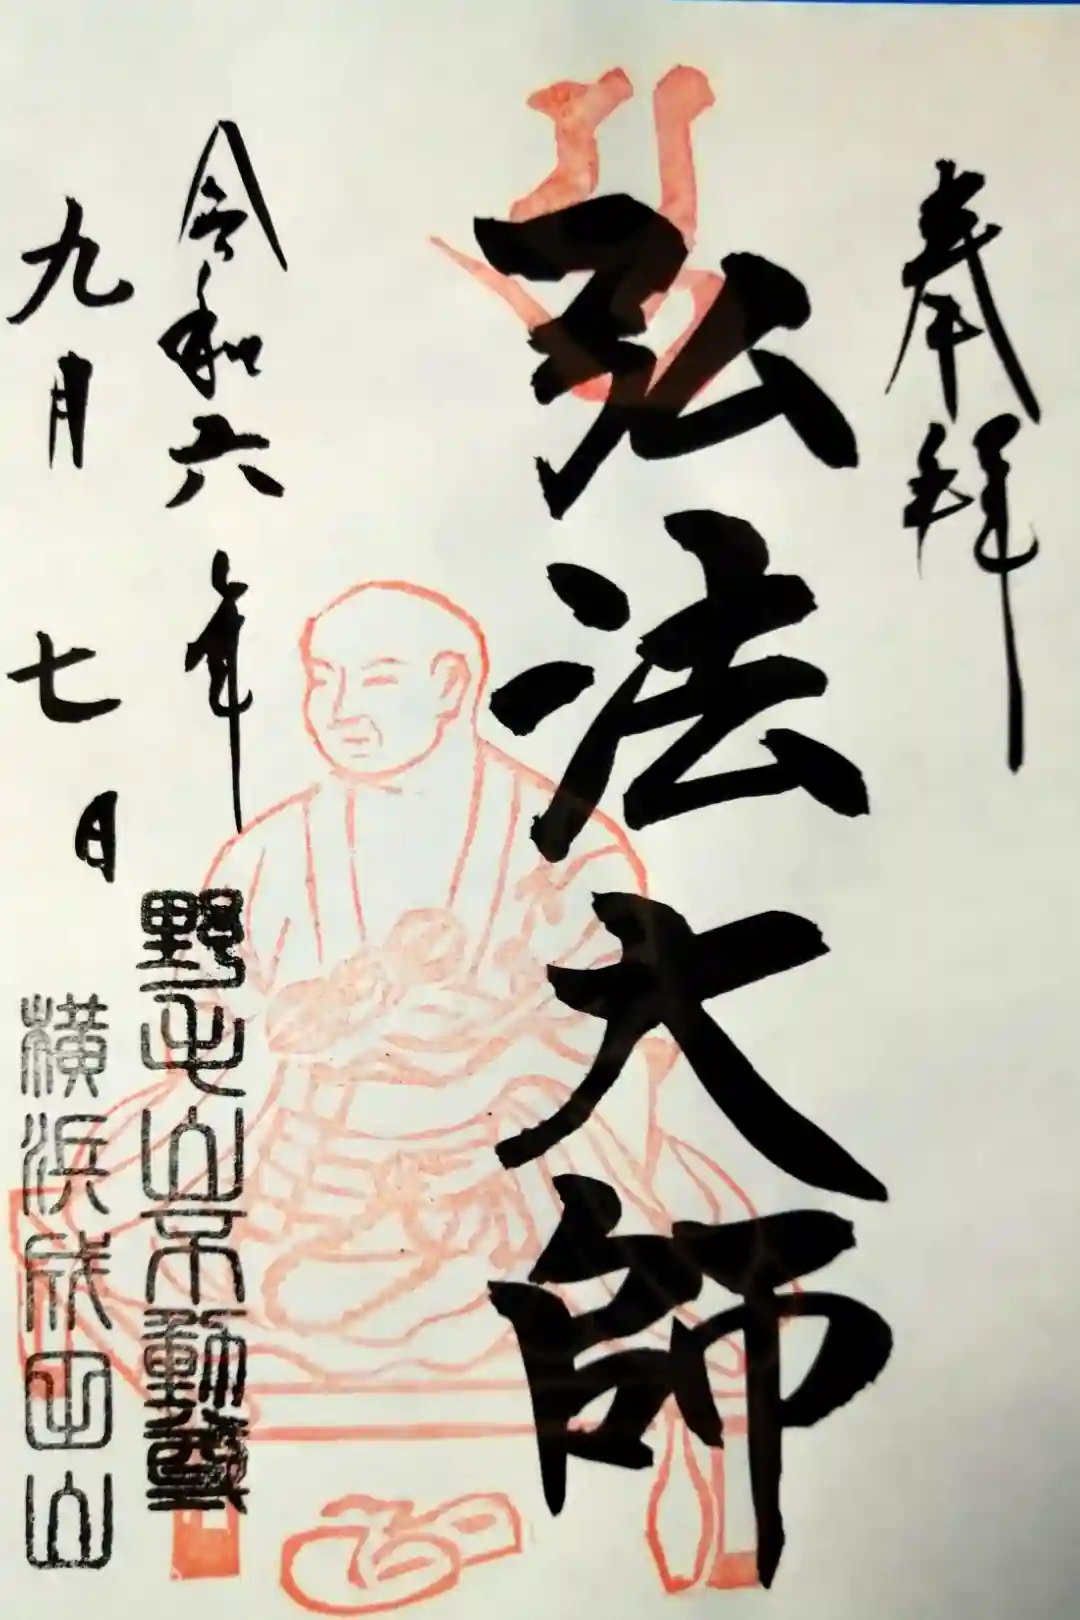 奉拝
弘法大師
令和六年
九月七日
野毛山不動尊
横浜成田山